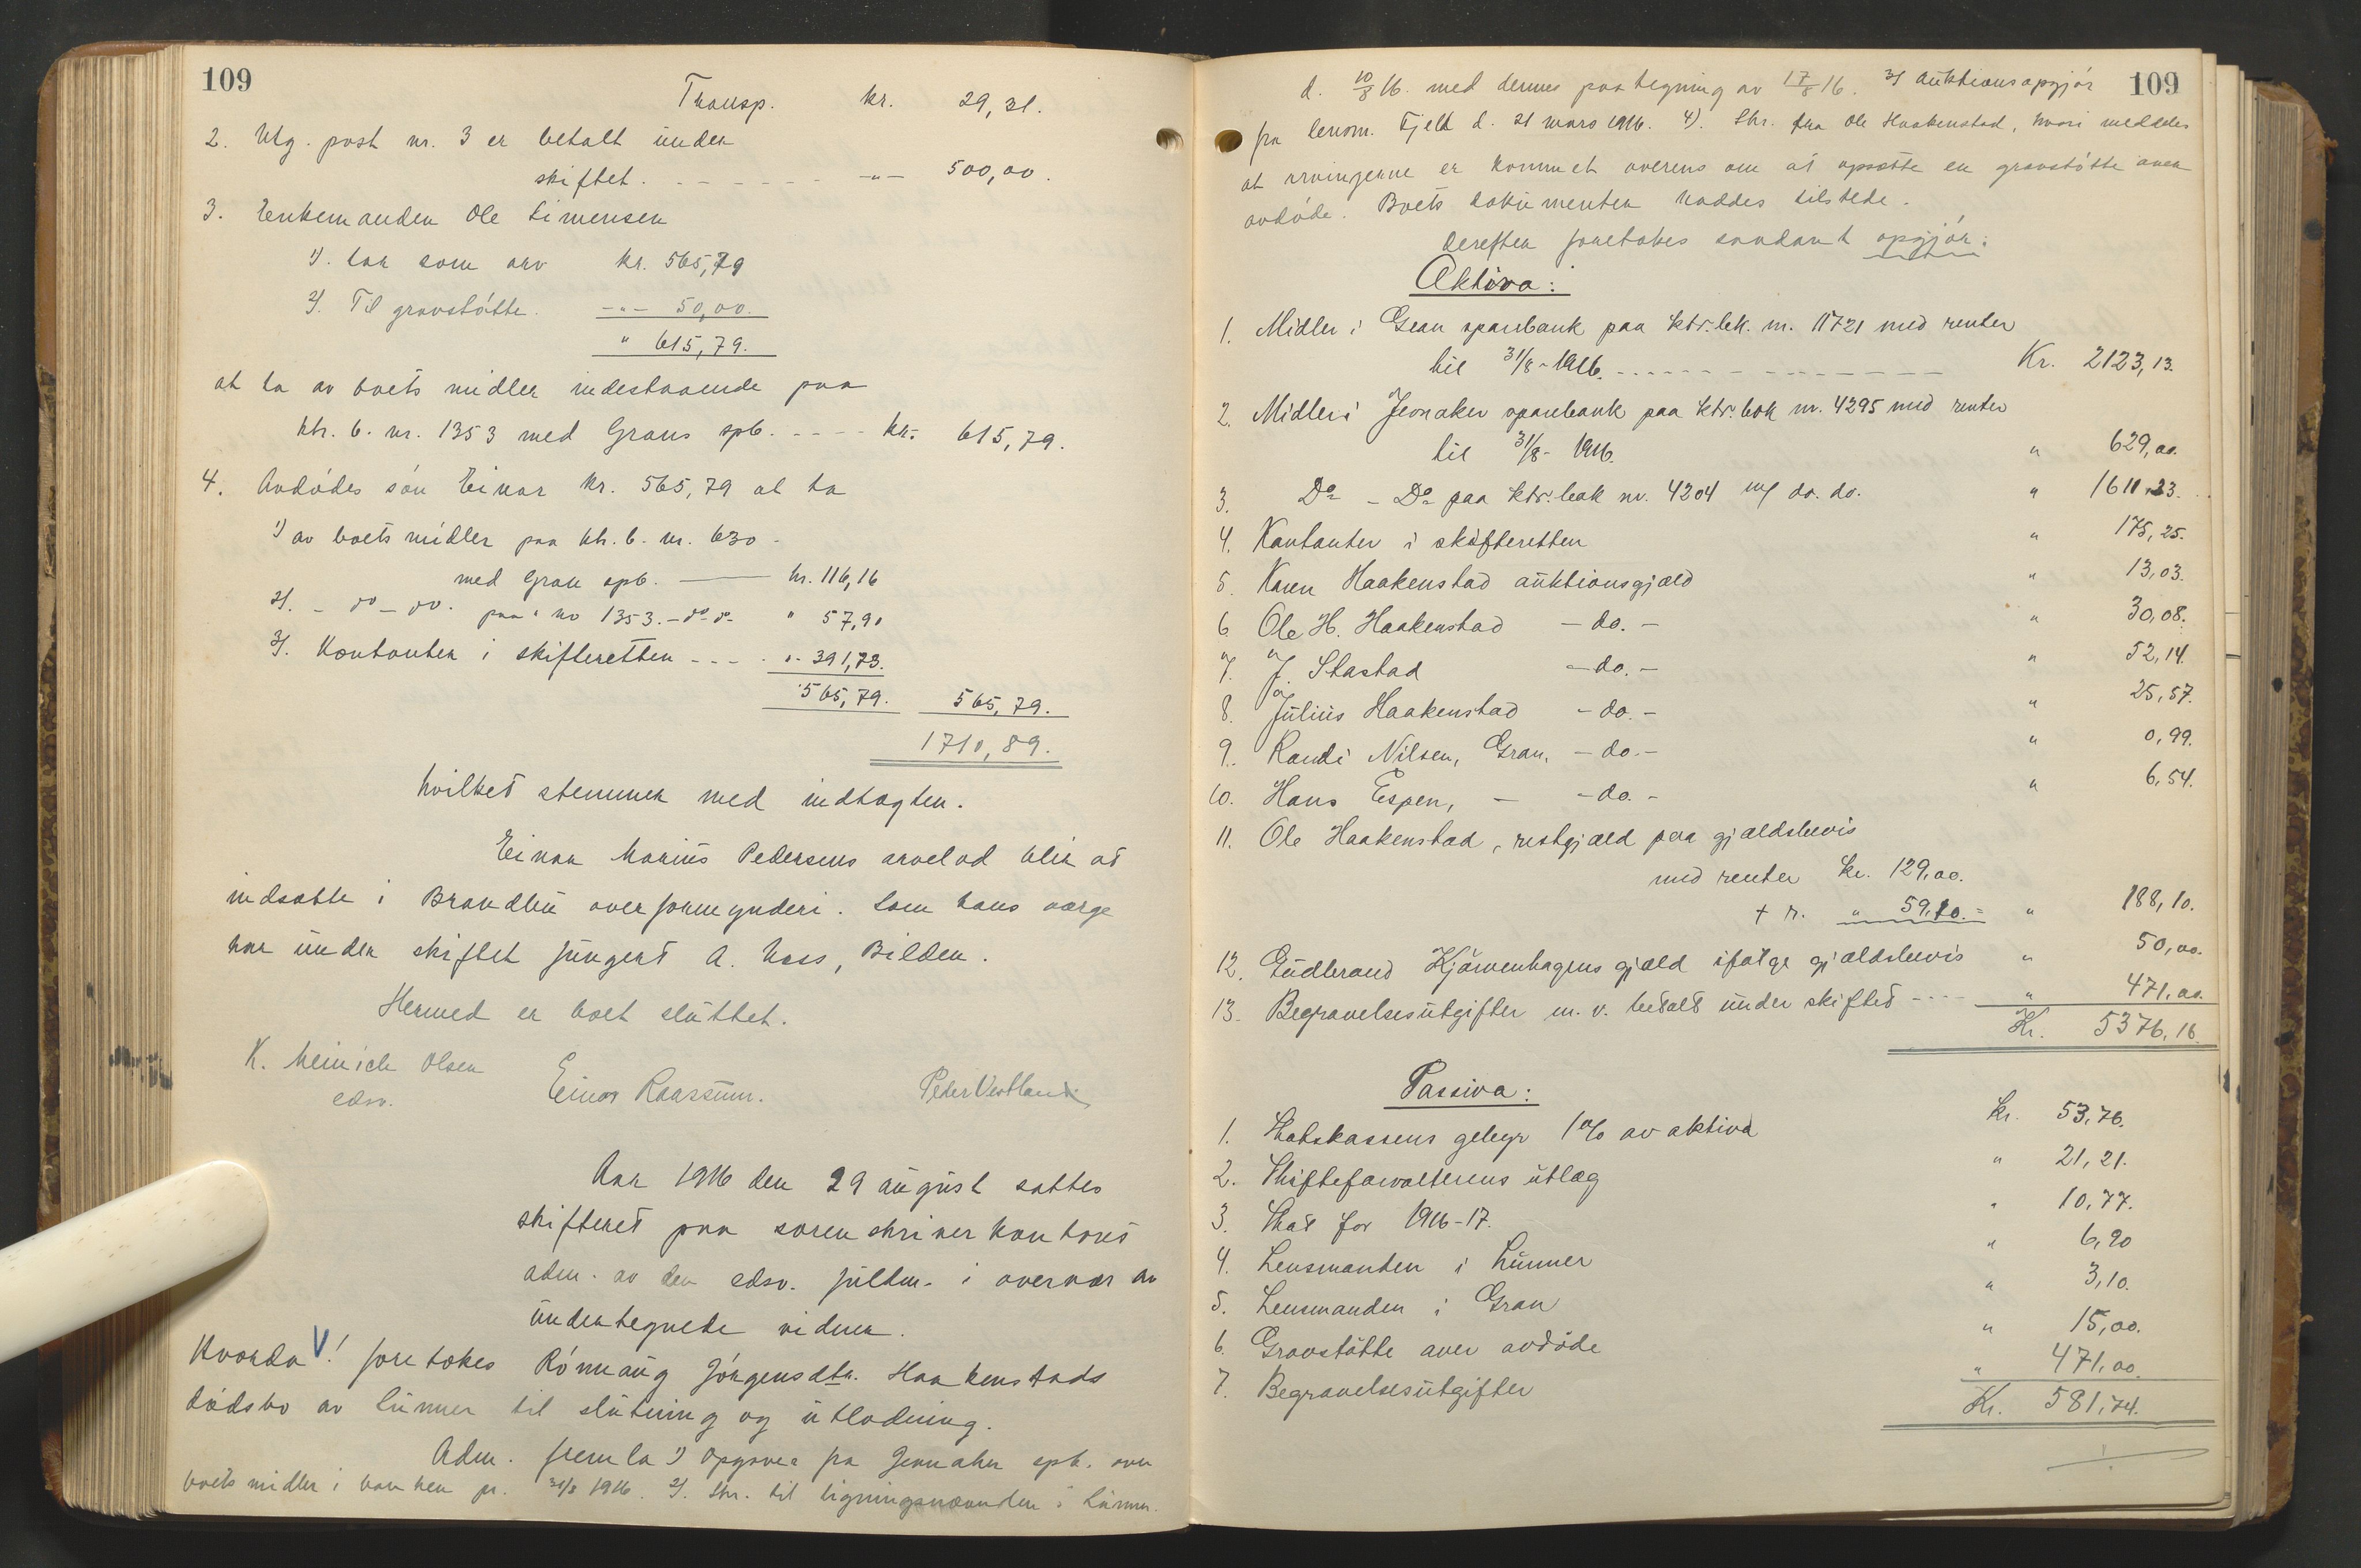 109
Transp. kr. 29,31.
2. Utg. post nr. 3 er betalt under
skiftet. - - - - - - -"- 500,00.
3. Enkemanden Ole Simensen
1). tar som arv kr. 565,79
2). Til gravstötte. -"- 50,00.
" 615,79.
at ta av boets midler indestaaende paa
ktr. b. nr. 1353 med Grans spb. - - - - kr. 615,79.
4. Avdödes sön Einar kr. 565,79 at ta
1) av boets midler paa ktr. b. nr. 630 -
med Gran spb. — kr. 116,16
2). - do - do. paa " no 1353. - do - do - " 57,90
3). Kontanter i skifteretten - - - . "- 391,73.
565,79. 565,79.
1710,89.
hvilket stemmer med indtægten.
Einar Marius Pedersens arvelod blir at
indsætte i Brandbu overformynderi. Som hans værge
har under skiftet fungert A. Næss, Bilden.
Hermed er boet sluttet.
K. Meinich Olsen
edsv.
Einar Raassum.
Peder Vestland
Aar 1916 den 29 august sattes
skifteret paa sorenskriverkontoret
adm. av den edsv. fuldm. i overvær av
undertegnede vidner.
Hvorda V! foretokes Rönnaug Jörgensdtr. Haakenstads
dödsbo av Lunner til slutning og utlodning.
Adm. fremla 1) Opgaver fra Jevnaker spb. over
boets midler i banken pr. 31/8 1916. 2). Skr. til ligningsnævnden i Lunner.
109
d. 10/8 16. med dennes paategning av 17/8 16. 3) Auktionsopgjör
fra lensm. Fjeld d. 21 mars 1916. 4). Skr. fra Ole Haakenstad, hvori meddeles
at arvingerne er kommet overens om at opsætte en gravstötte over
avdöde. Boets dokumenter haddes tilstede.
Derefter foretokes saadant opgjör:
Aktiva:
1. Midler i Gran sparebank paa ktr.bk. nr. 11721 med renter
til 31/8-1916. - - - - - - - - - - Kr. 2123,13.
2. Midler i Jevnaker sparebank paa ktr.bok nr. 4295 med renter
til 31/8- 1916. " 629,00.
3. Do - Do paa ktr.bok nr. 4204 m/ do. do. " 1611,23.
4. Kontanter i skifteretten " 175,25.
5. Karen Haakenstad auktionsgjæld " 13,03.
6. Ole H. Haakenstad - do. - " 30,08.
7. J. Stastad - do. - " 52,14.
8. Julius Haakenstad - do. - " 25,57.
9. Randi Nilsen, Gran, - do. - " 0,99.
10. Hans Espen, — - do. - " 6,54.
11. Ole Haakenstad, restgjæld paa gjældsbevis
med renter Kr. 129,00.
+ r. " 59,10. = " 188,10.
12. Gudbrand Kjörvenhagens gjæld ifölge gjældsbevis " 50,00.
13. Begravelsesutgifter m. v. betalt under skiftet - - - - " 471,00.
Kr. 5376,16.
Passiva:
1. Statskassens gebyr 1% av aktiva kr. 53,76.
2. Skifteforvalterens utlæg " 21,21.
3. Skat for 1916-17. " 10,77.
4. Lensmanden i Lunner " 6,90
5. Lensmanden i Gran " 3,10.
6. Gravstötte over avdöde " 15,00.
7. Begravelsesutgifter " 471,00.
Kr. 581,74.